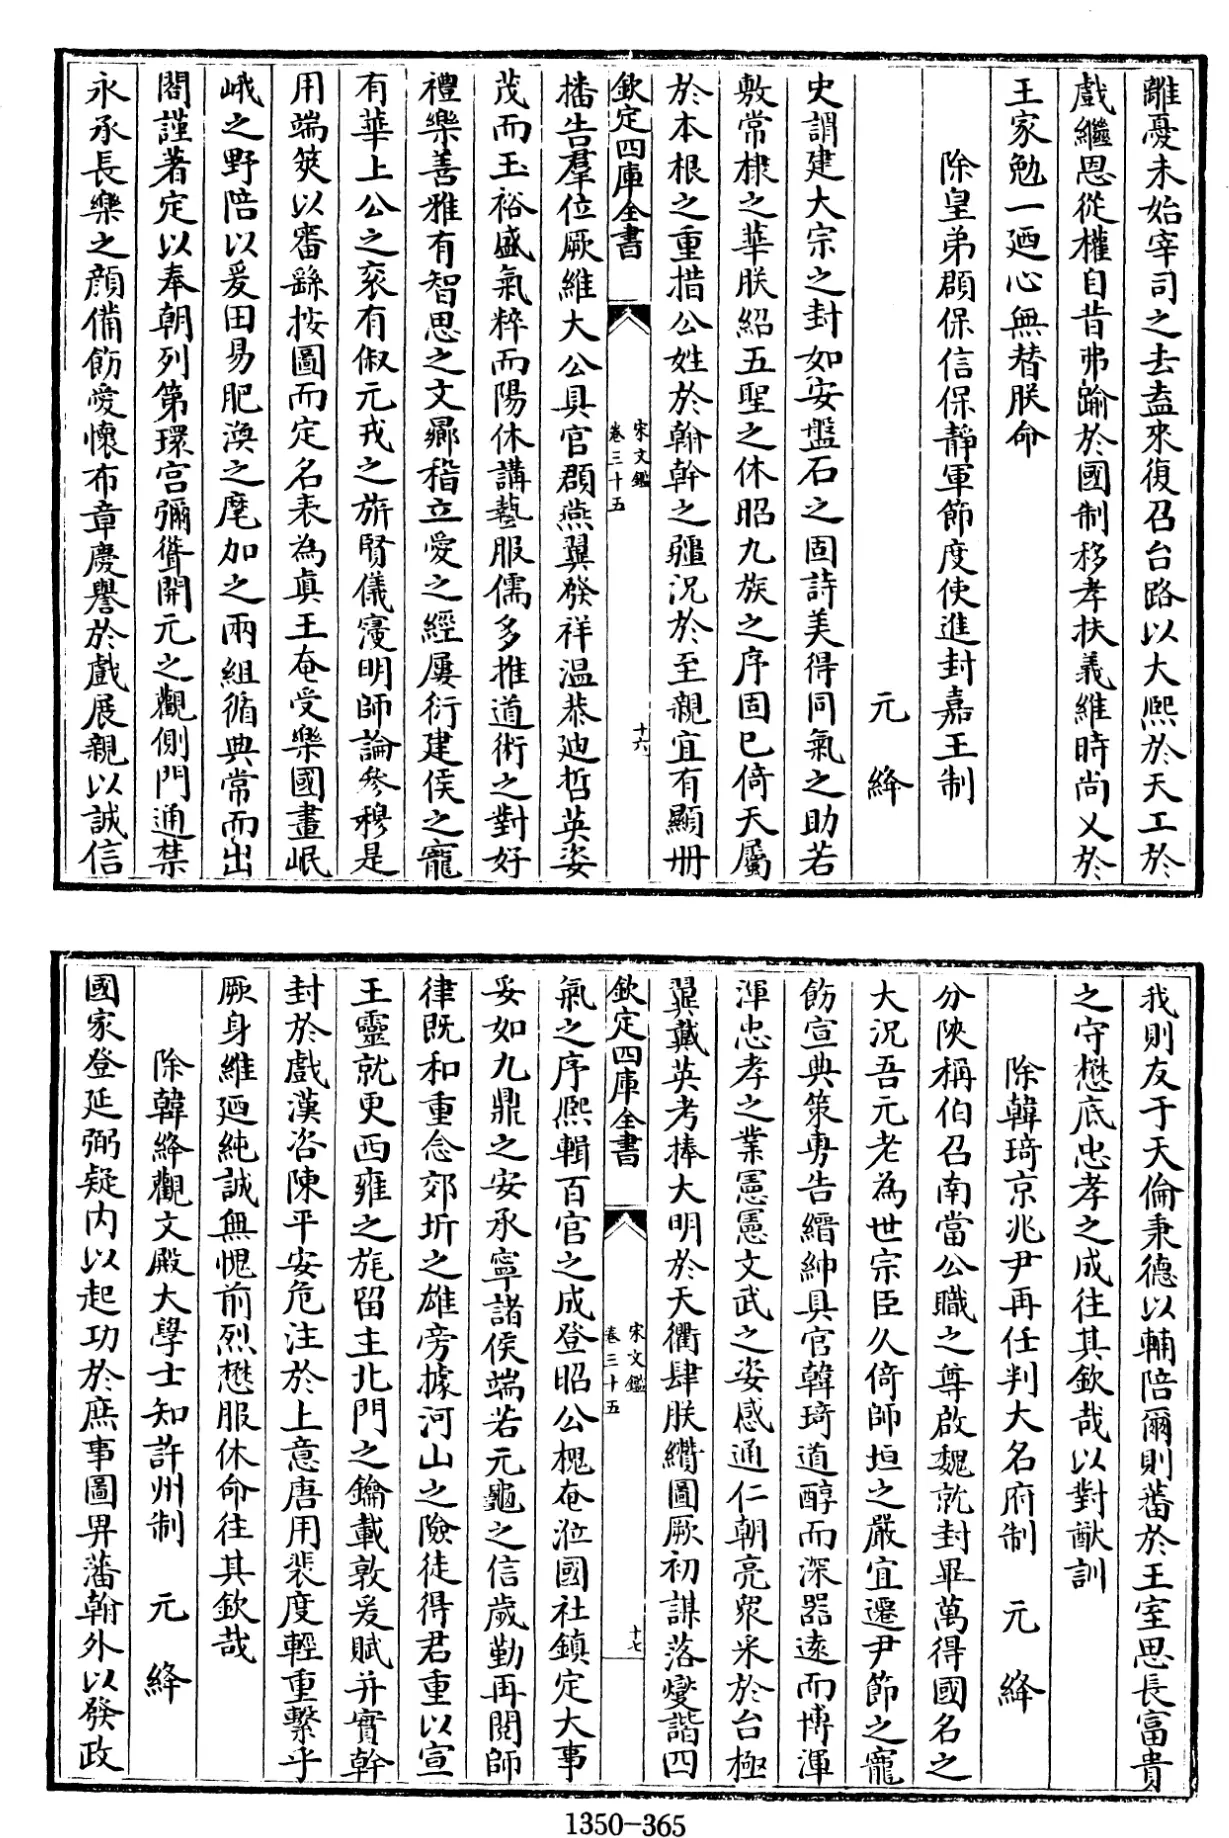 離憂未始宰司之去盍來復召台路以大熙於天工於
戲繼恩從權自昔弗踰於國制移孝扶義維時尚乂於
王家勉一廼心無替朕命
除皇弟頵保信保靜軍節度使進封嘉王制
元絳
史謂建大宗之封如安盤石之固詩美得同氣之助若
敷常棣之華朕紹五聖之休昭九族之序固已倚天屬
於本根之重措公姓於翰幹之疆況於至親宜有顯冊
欽定四庫全書
宋文鑑
卷三十五
十六
播告羣位厥維大公具官頵燕翼發祥溫恭迪哲英姿
茂而玉裕盛氣粹而陽休講藝服儒多推道術之對好
禮樂善雅有智思之文鄰稽立愛之經屢衍建侯之寵
有華上公之衮有俶元戎之旂賢儀寖明師論參穆是
用端筴以審繇按圖而定名表為真王奄受樂國畫岷
峨之野陪以爰田易肥渙之麾加之兩組循典常而出
閤謹著定以奉朝列第環宮彌聳開元之觀側門通禁
永承長樂之顔備飭愛懷布章慶譽於戲展親以誠信
我則友于天倫秉德以輔陪爾則蕃於王室思長富貴
之守懋底忠孝之成往其欽哉以對猷訓
除韓琦京兆尹再任判大名府制 元絳
分陜稱伯召南當公職之尊啟魏就封畢萬得國名之
大況吾元老為世宗臣久倚師垣之嚴宜遷尹節之寵
飭宣典策旉告縉紳具官韓琦道醇而深器逺而博渾
渾忠孝之業憲憲文武之姿感通仁朝亮衆采於台極
翼戴英考捧大明於天衢肆朕纘圖厥初謀落燮諧四
欽定四庫全書
宋文鑑
卷三十五
十七
氣之序熙輯百官之成登昭公槐奄涖國社鎮定大事
妥如九鼎之安承寧諸侯端若元龜之信歲勤再閱師
律既和重念郊圻之雄旁據河山之險徒得君重以宣
王靈就更西雍之旄留主北門之鑰載敦爰賦并實幹
封於戲漢咨陳平安危注於上意唐用裴度輕重繫乎
厥身維廼純誠無愧前烈懋服休命往其欽哉
除韓絳觀文殿大學士知許州制 元絳
國家登延弼疑内以起功於庶事圖畀藩翰外以發政
1350-365